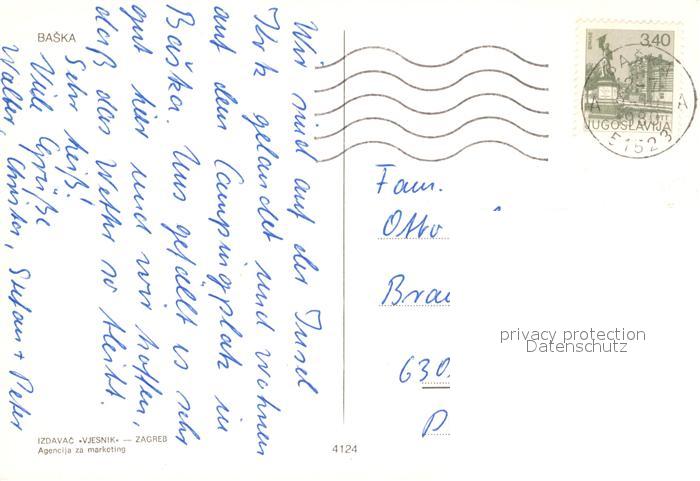 BAŠKA
Wir sind auf der Insel
Krk gelandet und wohnen
auf dem Campingplatz in
Baška. Uns gefällt es sehr
gut hier und wir hoffen,
daß das Wetter so bleibt.
Sehr heiß!
Viele Grüße
Walter, Christa, Stefan + Peter
IZDAVAČ »VJESNIK« — ZAGREB
Agencija za marketing
4124
3,40
JUGOSLAVIJA
51523
Fam.
Otto
Brau
630
privacy protection
Datenschutz